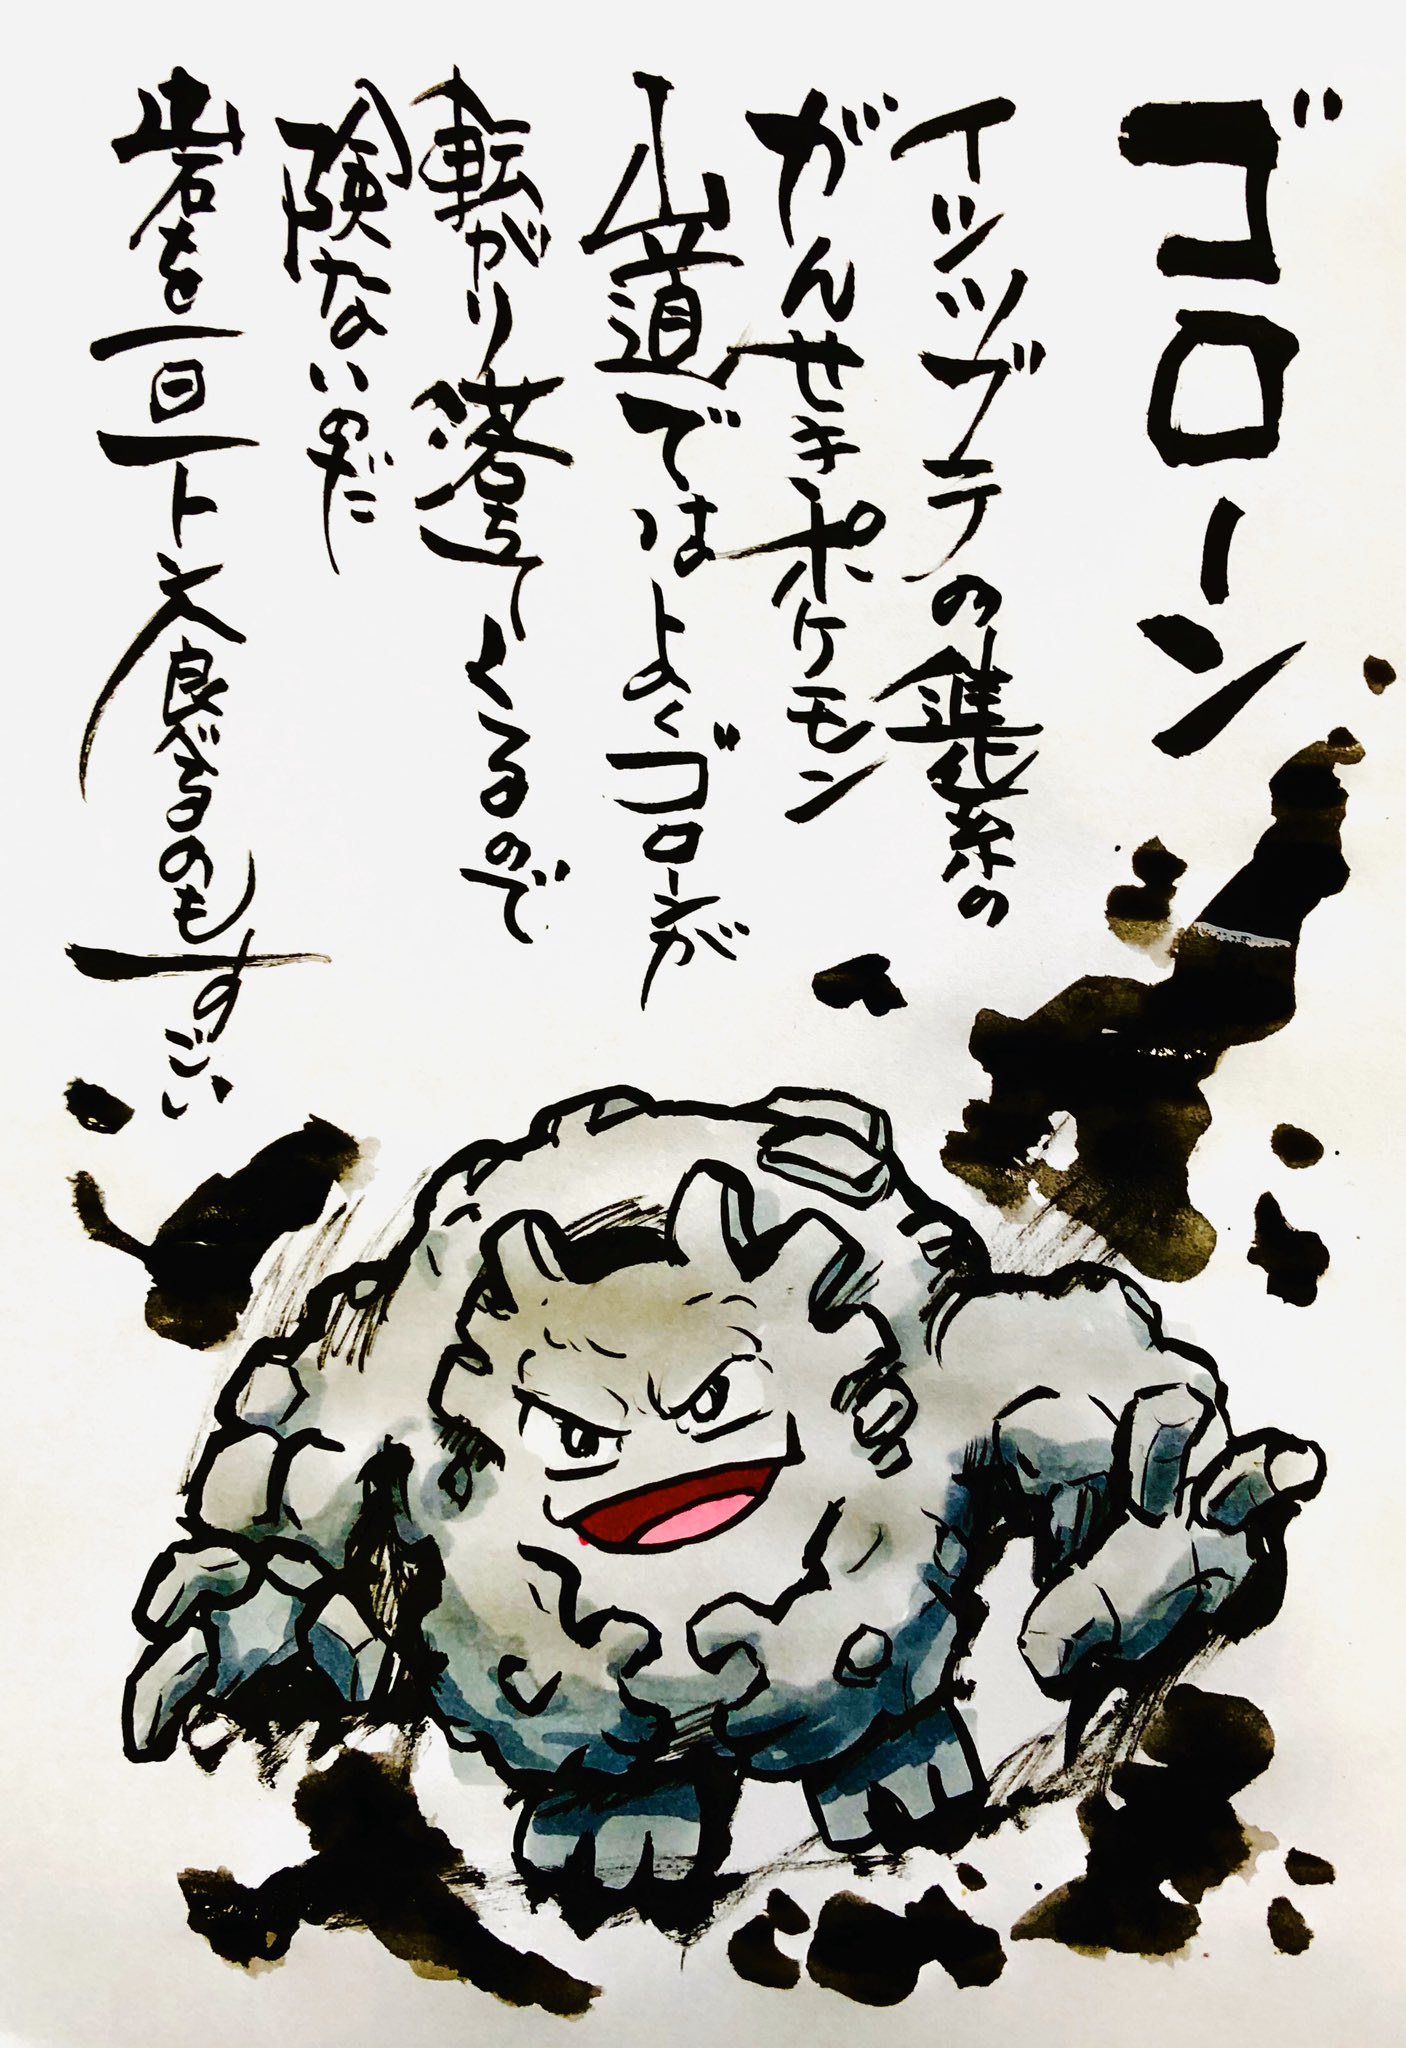 ゴローン
イシツブテの進化系の
がんせきポケモン
山道ではよくゴローンが
転がり落ちてくるので
険ないのだ
岩を一日一トン食べるのもすごい